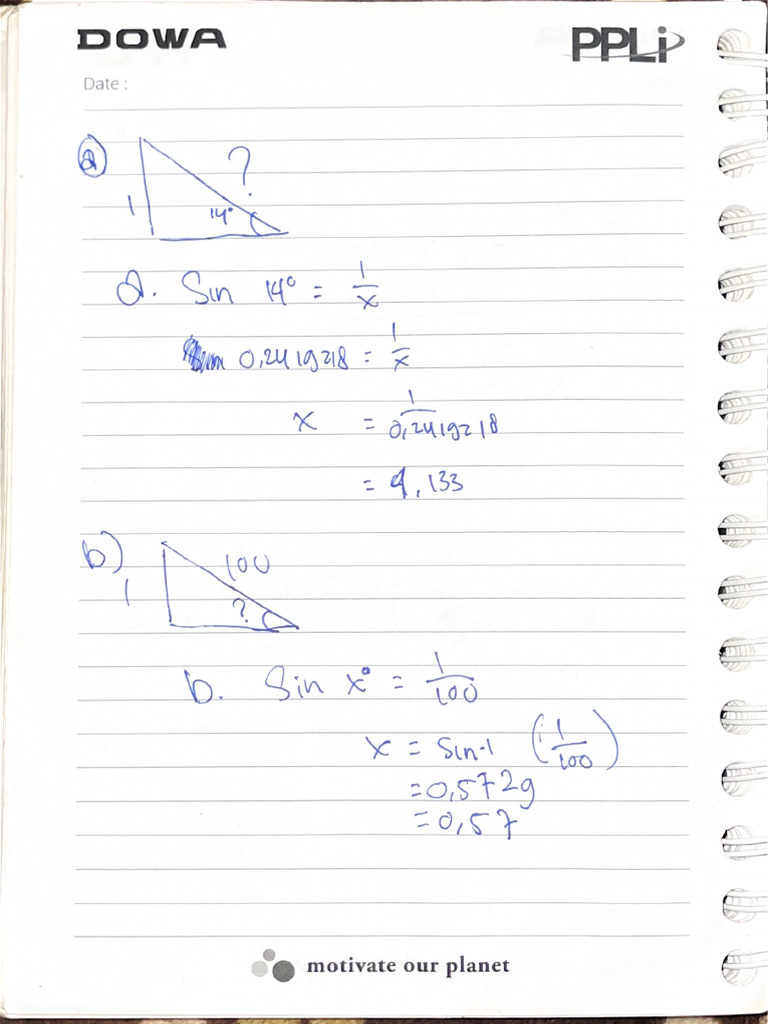 DOWA
PPLi
Date :
a
?
1
14°
a. Sin 14° = 1/x
0,2419218 = 1/x
x = 1/0,2419218
= 4,133
b)
100
1
?
b. Sin x° = 1/100
x = Sin-1 (1/100)
=0,5729
=0,57
motivate our planet